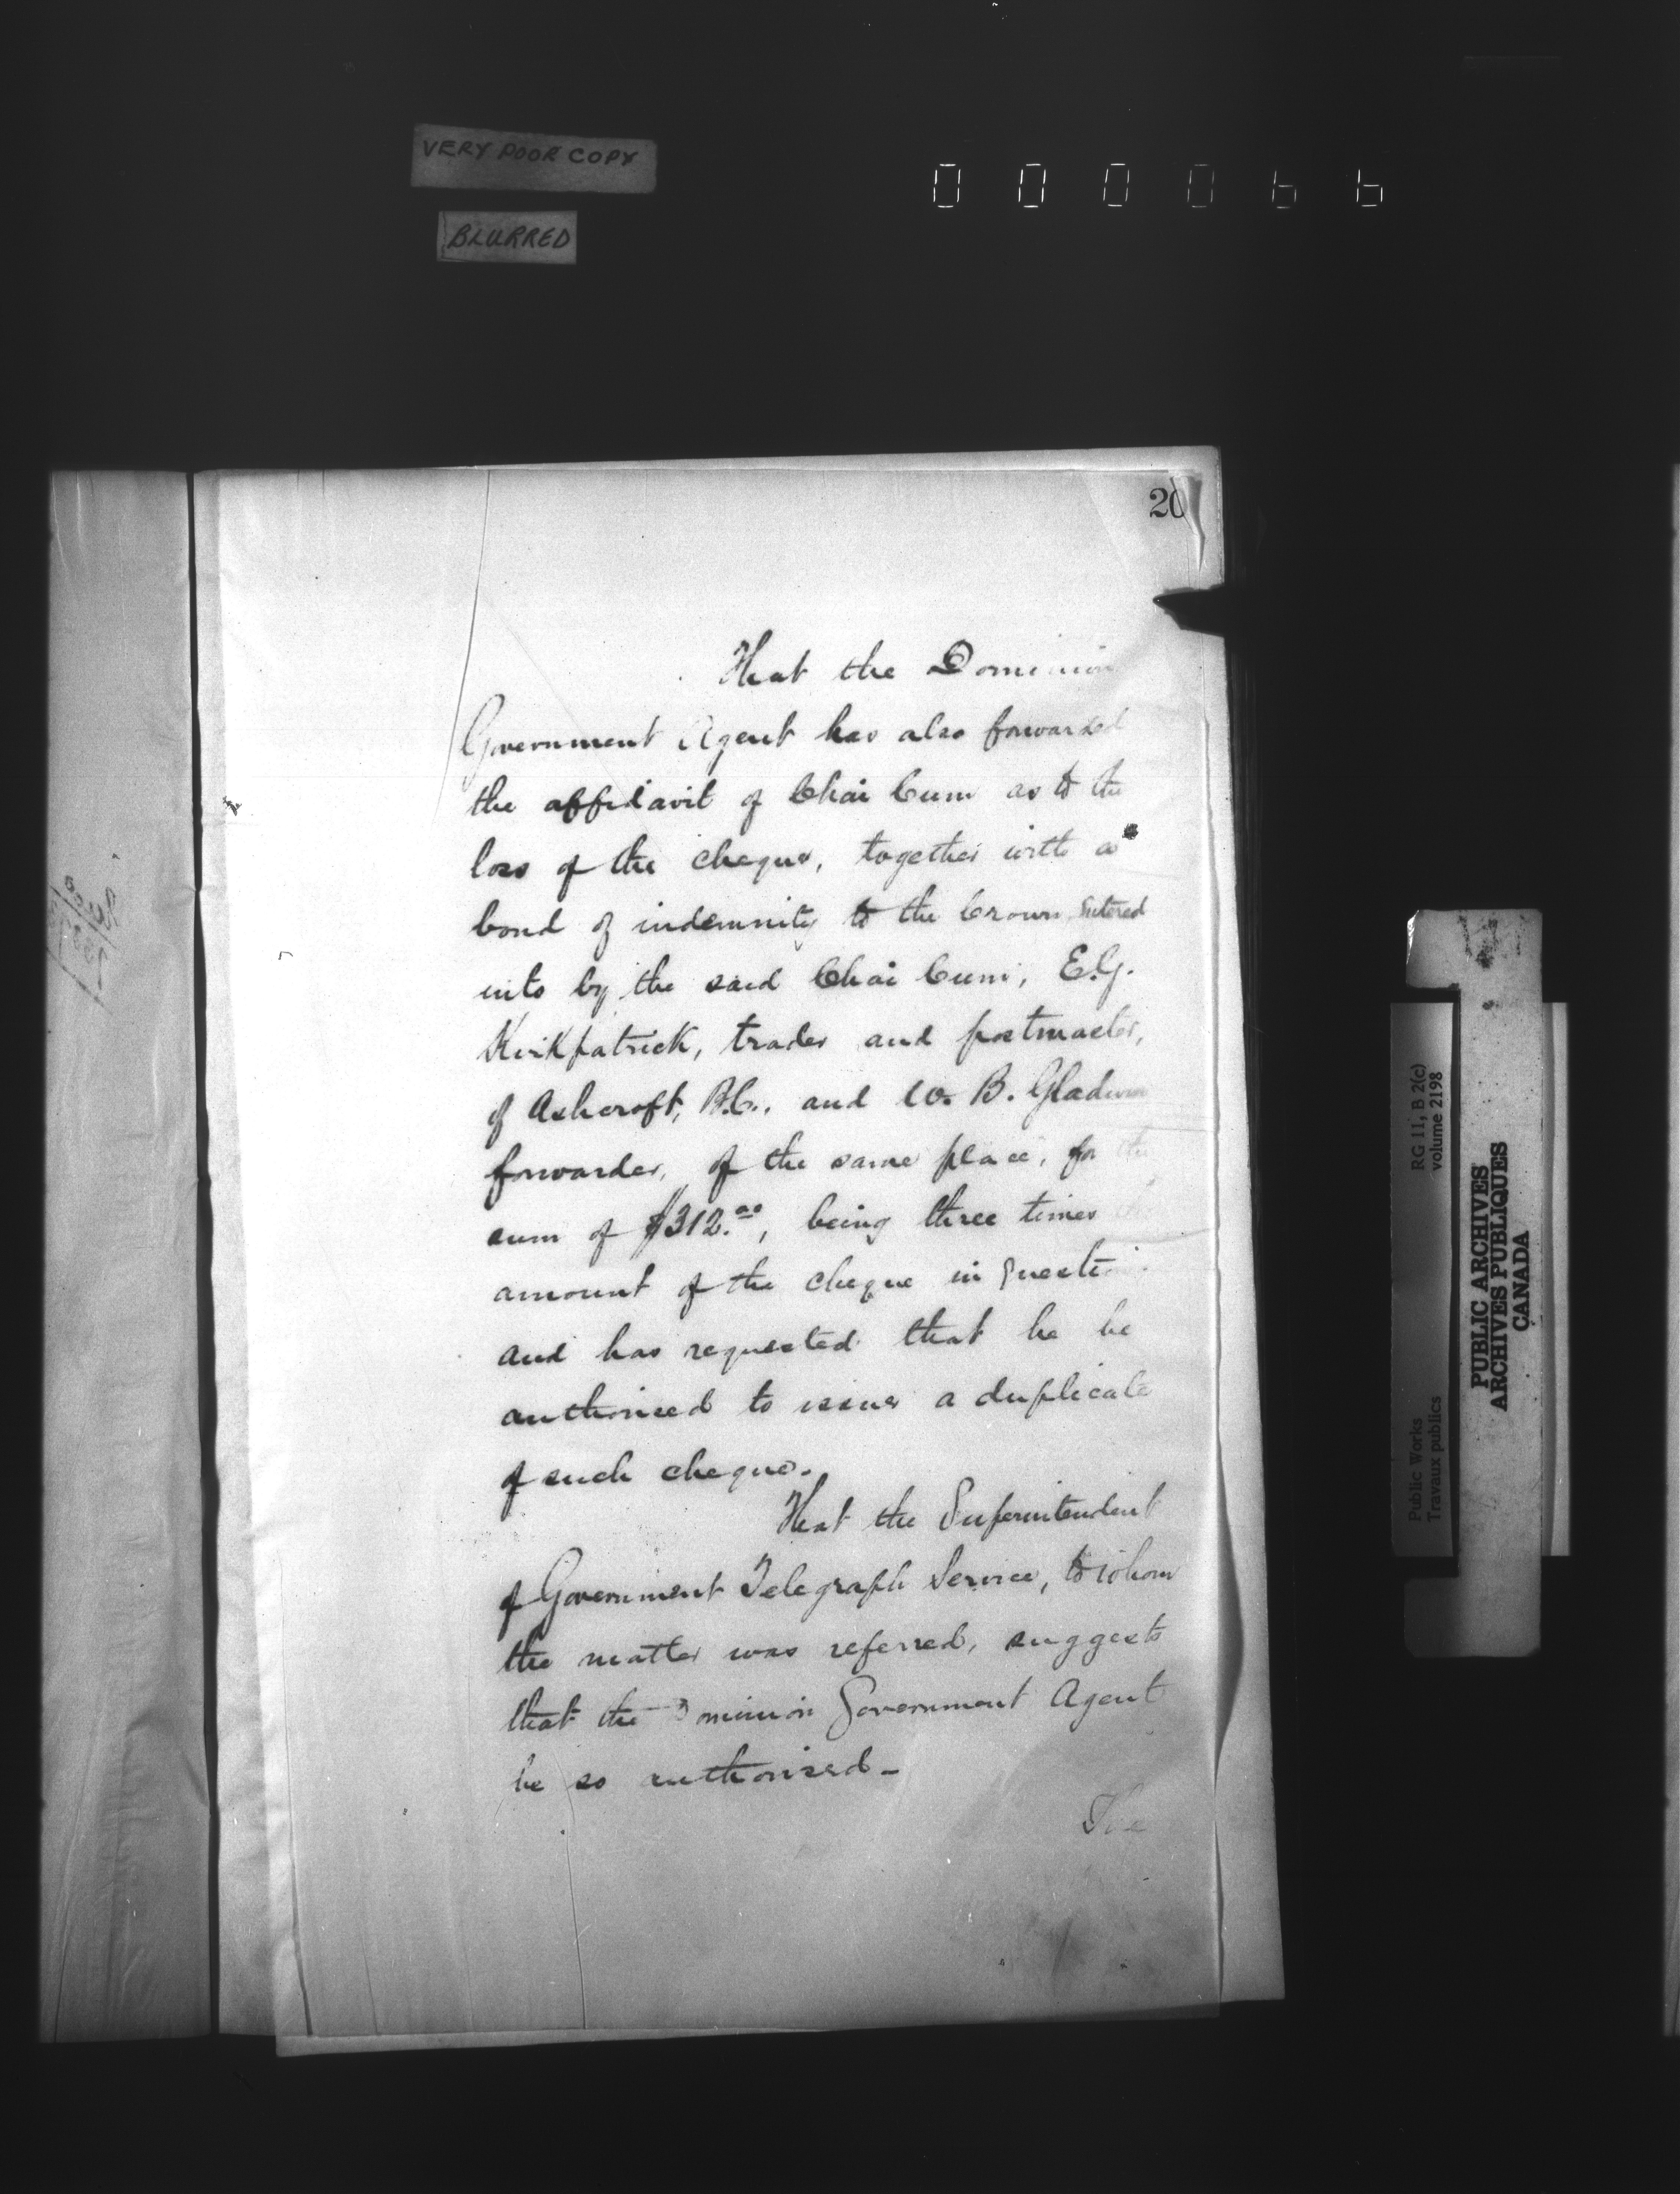 VERY POOR COPY
BLURRED
000066
20
That the Dominion
Government Agent has also forwarded
the affidavit of Chai Cum as to the
loss of the cheque, together with a
bond of indemnity to the Crown, entered
into by the said Chai Cum, E.G.
Kirkpatrick, trader and postmaster,
of Ashcroft, B.C., and W. B. Gladwin
forwarder, of the same place, for the
sum of $312.00, being three times the
amount of the cheque in question
and has requested that he be
authorised to issue a duplicate
of such cheque.
That the Superintendent
of Government Telegraph Service, to whom
the matter was referred, suggests
that the Dominion Government Agent
be so authorised-
The
RG 11, B 2(c)
volume 2198
Public Works
Travaux publics
PUBLIC ARCHIVES
ARCHIVES PUBLIQUES
CANADA